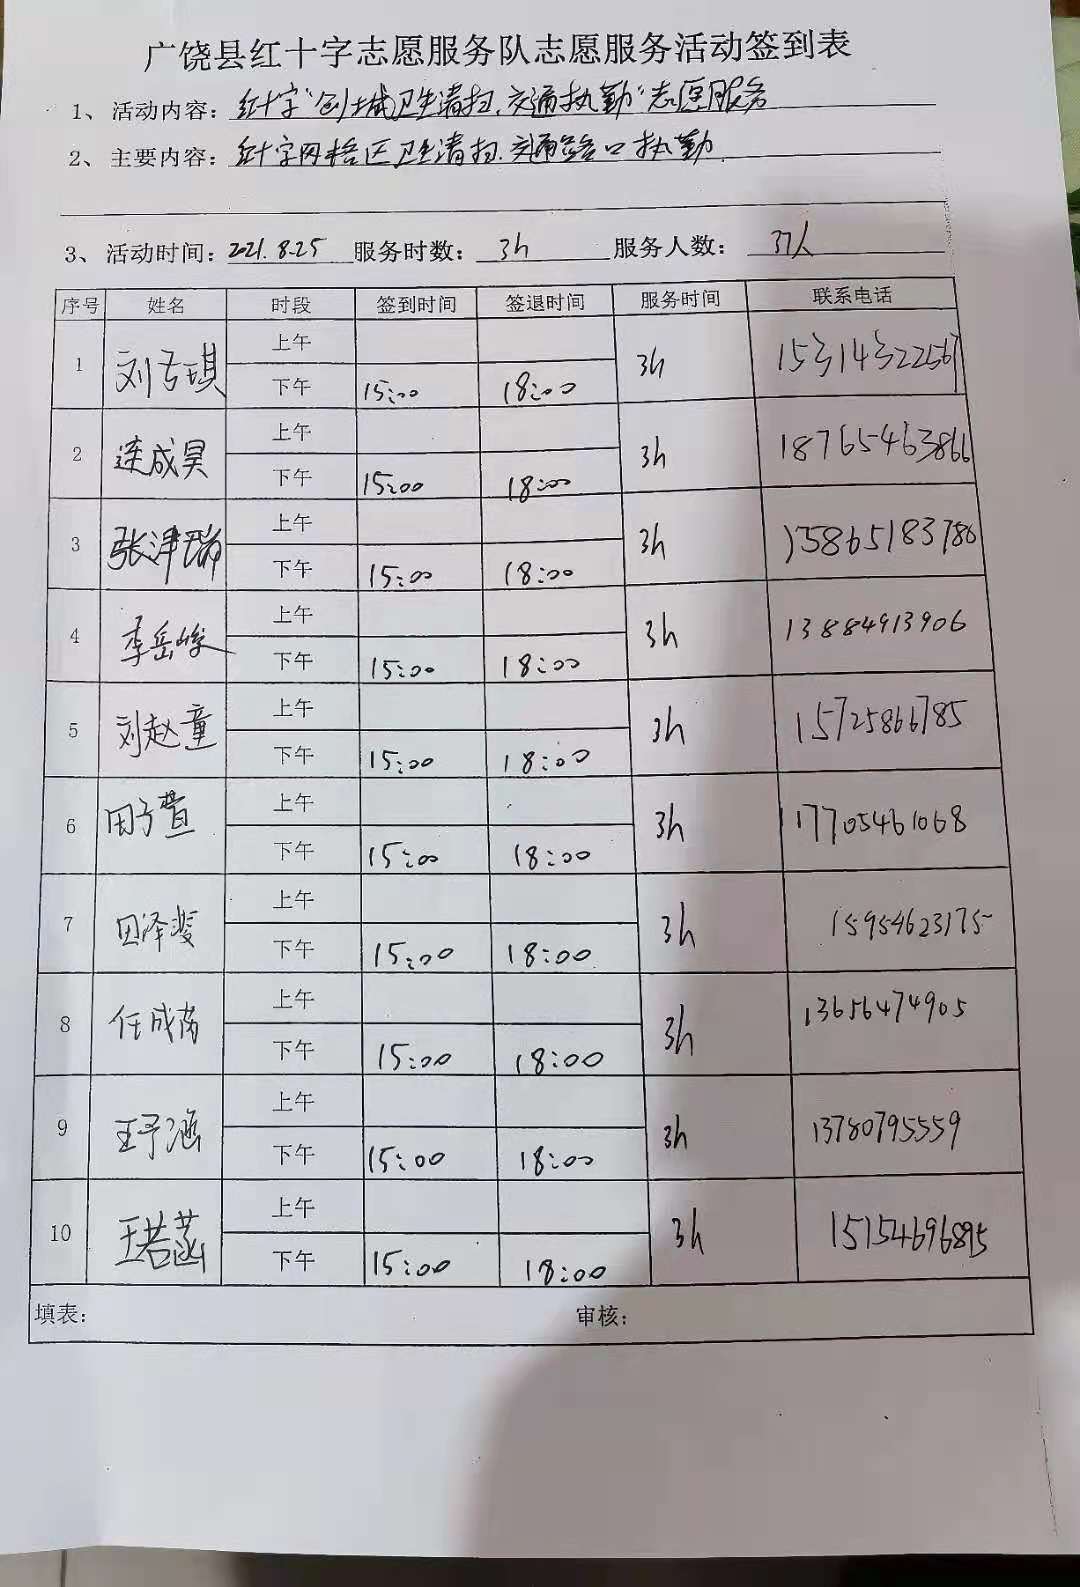 广饶县红十字志愿服务队志愿服务活动签到表
1、活动内容：红十字“创城卫生清扫、交通执勤”志愿服务
2、主要内容：红十字网格区卫生清扫、交通路口执勤.
3、活动时间：2021.8.25 服务时数：3h 服务人数：37人
序号 姓名 时段 签到时间 签退时间 服务时间 联系电话
上午
1 刘 琪 3h 15314322567
下午 15:00 18:00
上午
2 连成昊 3h 18765463866
下午 15:00 18:00
上午
3 张津瑞 3h 13865183786
下午 15:00 18:00
上午
4 李岳峻 3h 13884913906
下午 15:00 18:00
上午
5 刘赵童 3h 15725866785
下午 15:00 18:00
上午
6 田子萱 3h 17705461068
下午 15:00 18:00
上午
7 田泽斐 3h 15954623175
下午 15:00 18:00
上午
8 任成 3h 13656474905
下午 15:00 18:00
上午
9 王予涵 3h 13780795559
下午 15:00 18:00
上午
10 王若菡 3h 15154696895
下午 15:00 18:00
填表： 审核：